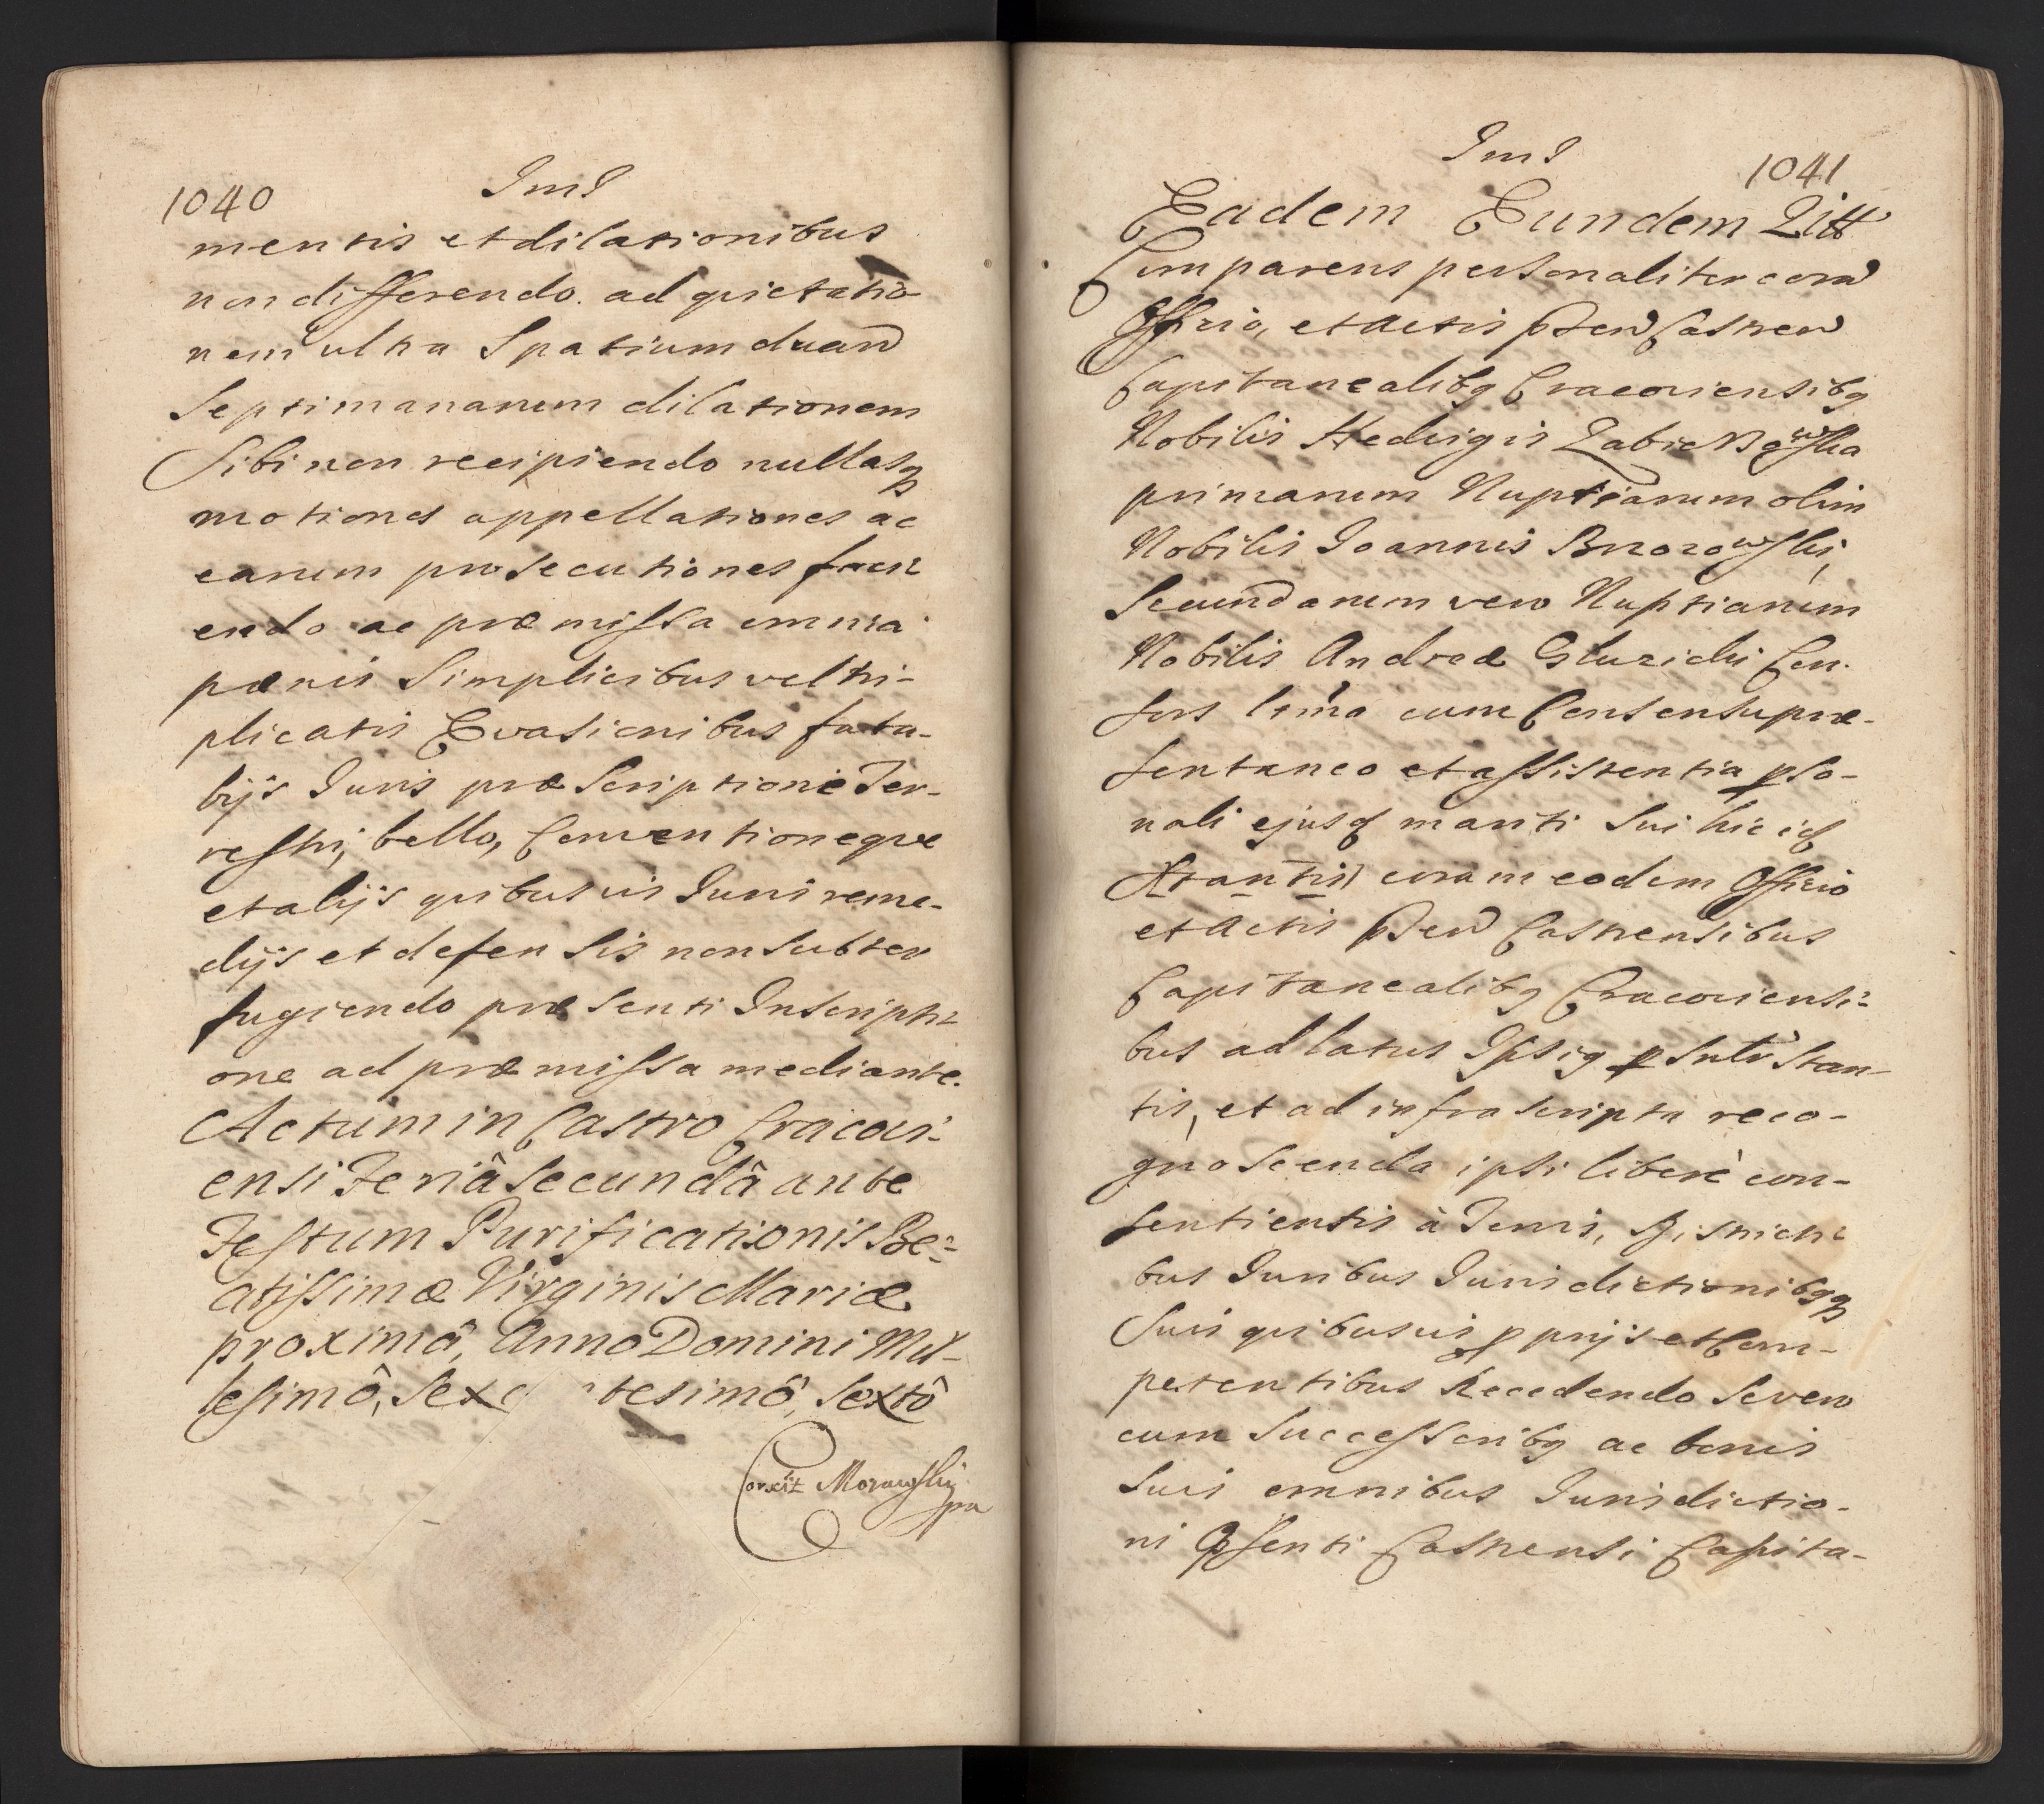 1040
mentis et dilationibus
non differendo. ad quietatio-
nem ultra Spatium duar
Septimanarum dilationem
Sibi non recipiendo nullasq
motiones appellationes ac
earum prosecutiones faci
endo ac præmissa omnia
pænis Simplicibus vel tri-
plicatis Evasionibus fata-
lijs Juris præscriptione Ter-
restri, bello, Conventioneque
et alijs quibusvis Juris reme-
dijs et defensis non Subter
fugiendo præsenti Inscripti-
one ad præmissa mediante.
Actum in Castro Cracovi-
ensi Feriâ Secundâ ante
Festum Purificationis Be-
atissimæ Virginis Mariæ
proximâ, Anno Domini Mil-
lesimô, Sexc tesimô, Sextô
Corxit Morawskij
mp
1041
Eadem Eundem Litt
Comparens personaliter cora
Officio, et Actis pñ Castren
Capitanealibq Cracoviensibq
Nobilis Hedvigis
primarum Nuptiarum olim
Nobilis Joannis Brzozowski,
Secundarum vero Nuptiarum
Nobilis Andreæ Con-
sors ltma cum Consensu præ-
sentaneo et assistentia pso-
nali ejusq mariti Sui hic
Stantis coram eodem Officio
et Actis pñ Castrensibus
Capitanealibq Cracoviensi-
bus ad latus Ipsiq pslr Stan-
tis, et ad infrascripta reco-
gnoscenda ipsi liberè con-
sentientis à Terris, Districti
bus Juribus Jurisdictionibqq
Suis quibusvis pprijs et Com-
petentibus Recedendo Severo
cum Successoribq ac bonis
Suis omnibus Jurisdictio-
ni psenti Castrensi Capita-